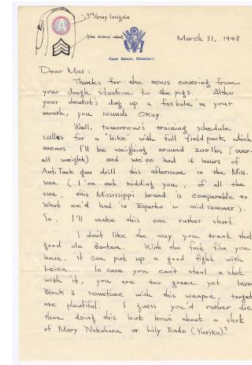 3rd Army Insignia
March 31, 1943
Dear Mas:
Thanks for the news covering from
your dough situation to the pigs. Altho
your dentist's dug up a foxhole in your
mouth, you sounds Okay.
Well, tomorrow's training schedule
calls for a "bike" with full field pack which
means I'll be weighing around 200 lbs (over-
all weight) and we've had 4 hours of
Anti Tank gun drill this afternoon in the Miss.
sun (I'm not kidding you, of all the
this Mississippi brand is comparable to
what we'd had in Esparto in mid summer).
So, I'll make this one rather short.
I don't like the way you treat that
good ole Bantam. With the fast film you
have, it can put up a good fight with
Leica. In case you can't steal a shot
with it, you are too green yet.
Block 3 sometime with this weapon, target
are plentiful. I guess you'd rather die
than doing this but how about a shot
of Mary Nakahara or Lily Endo (Yuriko)?